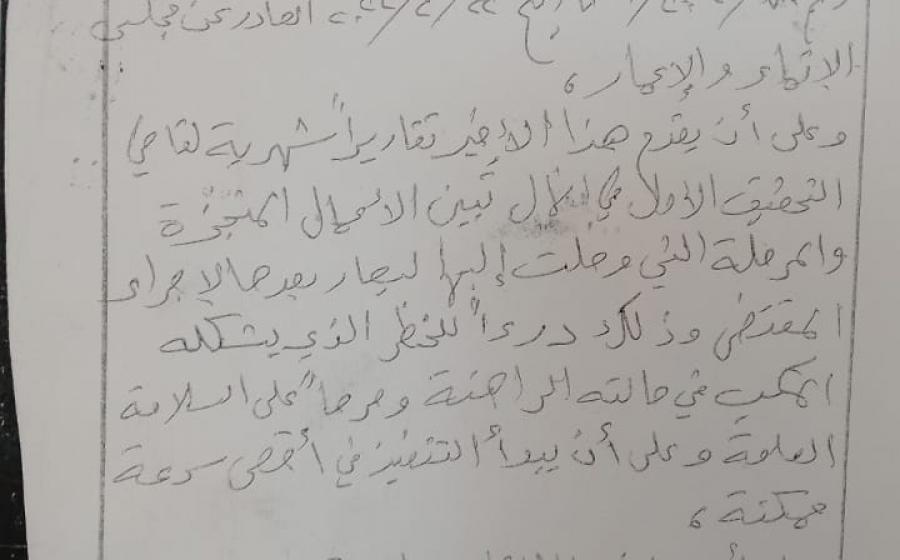 الصادر عن مجلس
الإنماء والإعمار،
وعلى أن يقدم هذا الأخير تقاريراً شهرية لقاضي
التحقيق الأول في الشمال تبين الأعمال المنجزة
والمرحلة التي وصلت إليها ليصار بعدها لإجراء
المقتضى وذلك درءاً للخطر الذي يشكله
المكب في حالته الراهنة وحرصاً على السلامة
العامة وعلى أن يبدأ التنفيذ في أقصى سرعة
ممكنة،